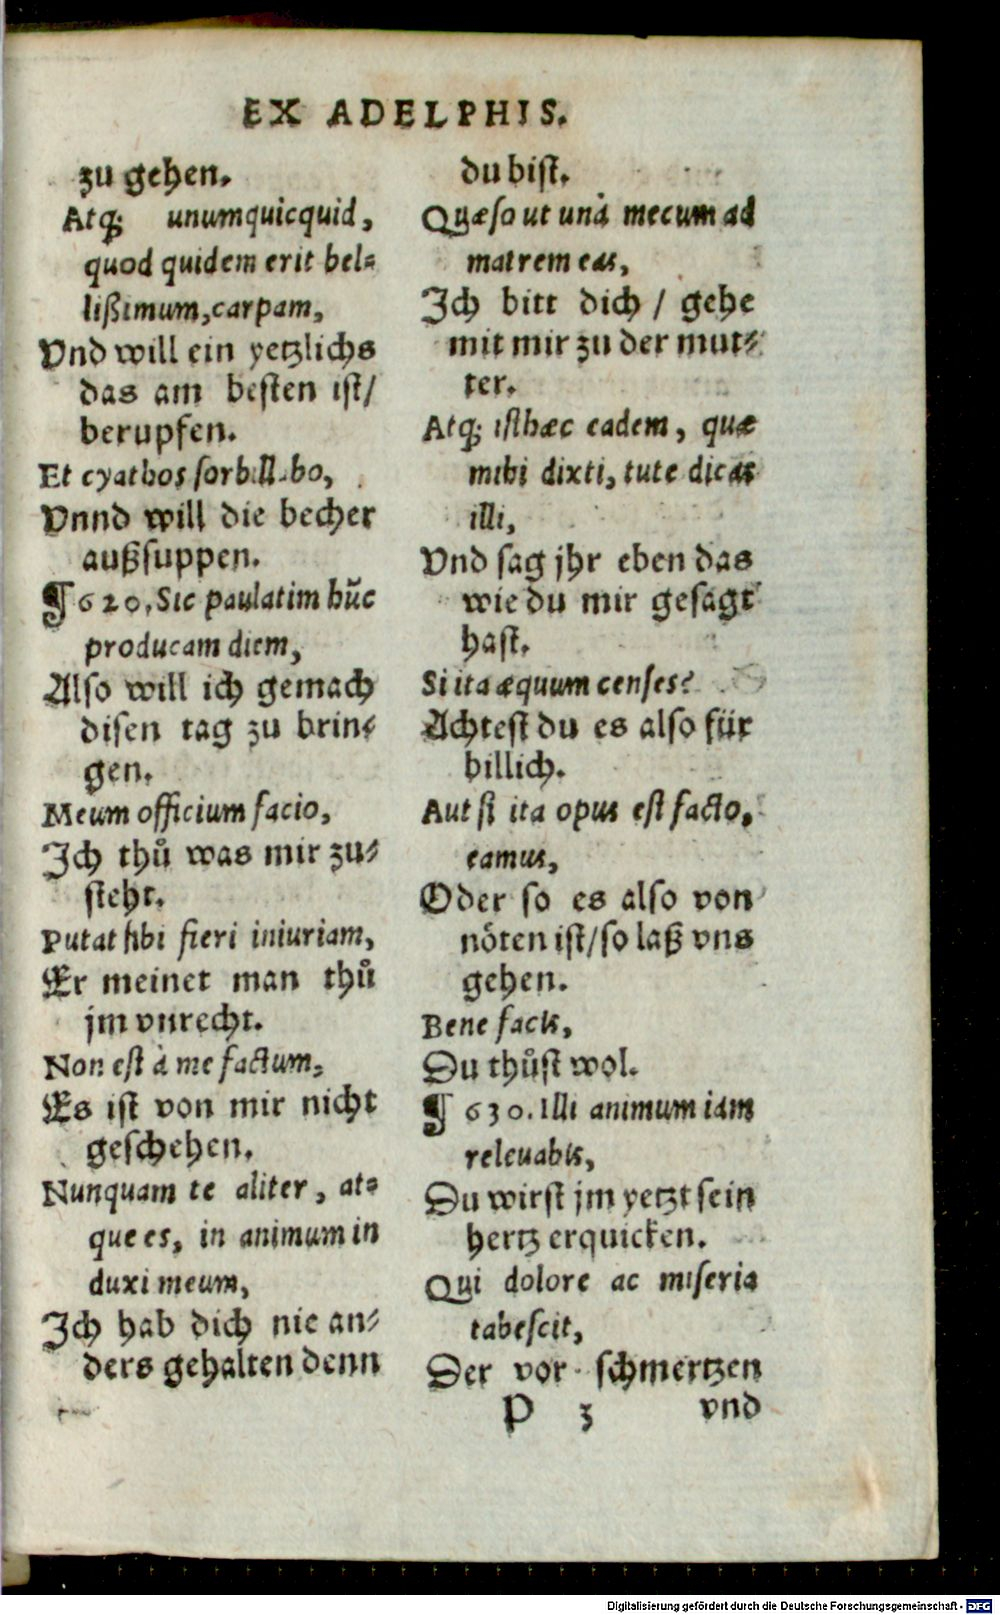 EX ADELPHIS.
zu gehen.
Atq; unumquicquid,
quod quidem erit bel-
lißimum, carpam,
Vnd will ein yetzlichs
das am besten ist/
berupfen.
Et cyathos sorbillabo,
Vnnd will die becher
außsuppen.
¶ 620. Sic paulatim hūc
producam diem,
Also will ich gemach
disen tag zu brin-
gen.
Meum officium facio,
Ich thů was mir zu-
steht.
Putat sibi fieri iniuriam,
Er meinet man thů
jm vnrecht.
Non est à me factum,
Es ist von mir nicht
geschehen.
Nunquam te aliter, at-
que es, in animum in
duxi meum,
Ich hab dich nie an-
ders gehalten denn
du bist.
Quæso ut unà mecum ad
matrem eas,
Ich bitt dich / gehe
mit mir zu der mut-
ter.
Atq; isthæc eadem, quæ
mihi dixti, tute dicas
illi,
Vnd sag jhr eben das
wie du mir gesagt
hast.
Si ita æquum censes?
Achtest du es also für
billich.
Aut si ita opus est facto,
eamus,
Oder so es also von
nöten ist/so laß vns
gehen.
Bene facis,
Du thůst wol.
¶ 630. Illi animum iam
releuabis,
Du wirst jm yetzt sein
hertz erquicken.
Qui dolore ac miseria
tabescit,
Der vor schmertzen
P 3 vnd
Digitalisierung gefördert durch die Deutsche Forschungsgemeinschaft - DFG